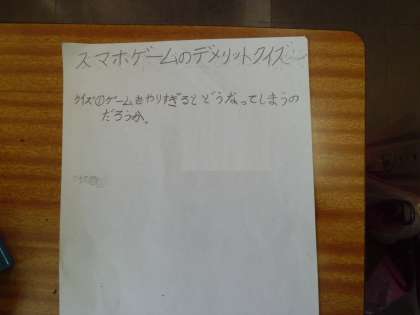 スマホゲームのデメリットクイズ
クイズ①ゲームをやりすぎるとどうなってしまうの
だろうか。